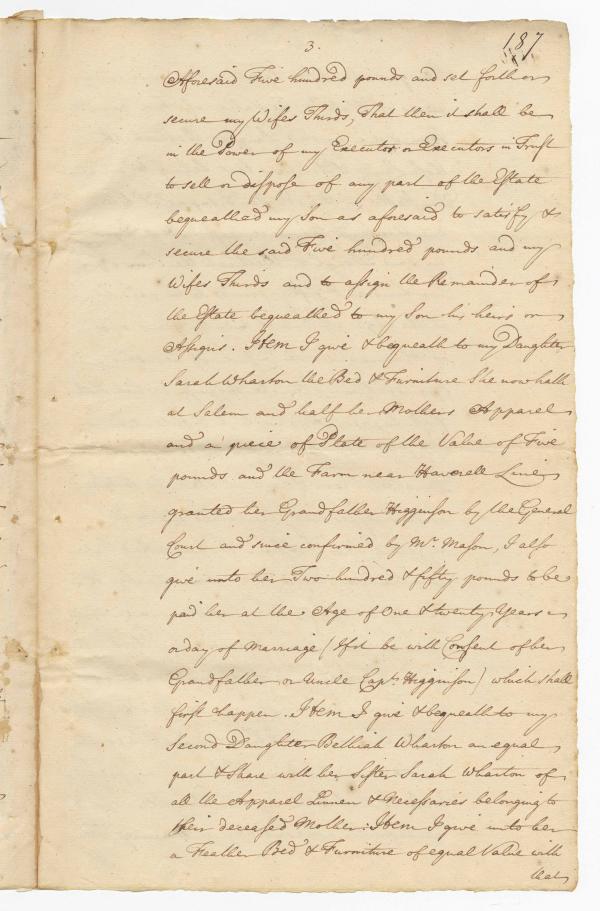 3.
187
Aforesaid Five hundred pounds and set forth or
secure my Wifes Thirds, That then it shall be
in the Power of my Executor or Executors in Trust
to sell or dispose of any part of the Estate
bequeathed my Son as aforesaid to satisfy &
secure the said Five hundred pounds and my
Wifes Thirds and to assign the Remainder of
the Estate bequeathed to my Son his heirs or
Assigns. Item I give & bequeath to my Daughter
Sarah Wharton the Bed & Furniture She now hath
at Salem and half her Mothers Apparel
and a piece of Plate of the Value of Five
pounds and the Farm near Haverell Line
granted her Grandfather Higginson by the General
Court and since confirmed by Mr. Mason, I also
give unto her Two hundred & fifty pounds to be
paid her at the Age of One & twenty Years
or day of Marriage (if it be with Consent of her
Grandfather or Uncle Capt. Higginson) which shall
first happen. Item I give & bequeath to my
Second Daughter Belliah Wharton an equal
part & Share with her Sister Sarah Wharton of
all the Apparel Linnen & Necessaries belonging to
their deceased Mother: Item I give unto her
a Feather Bed & Furniture of equal Value with
that